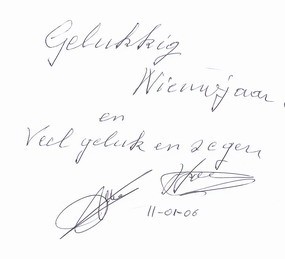 Gelukkig
Nieuwjaar.
en
Veel geluk en zegen
11-01-06